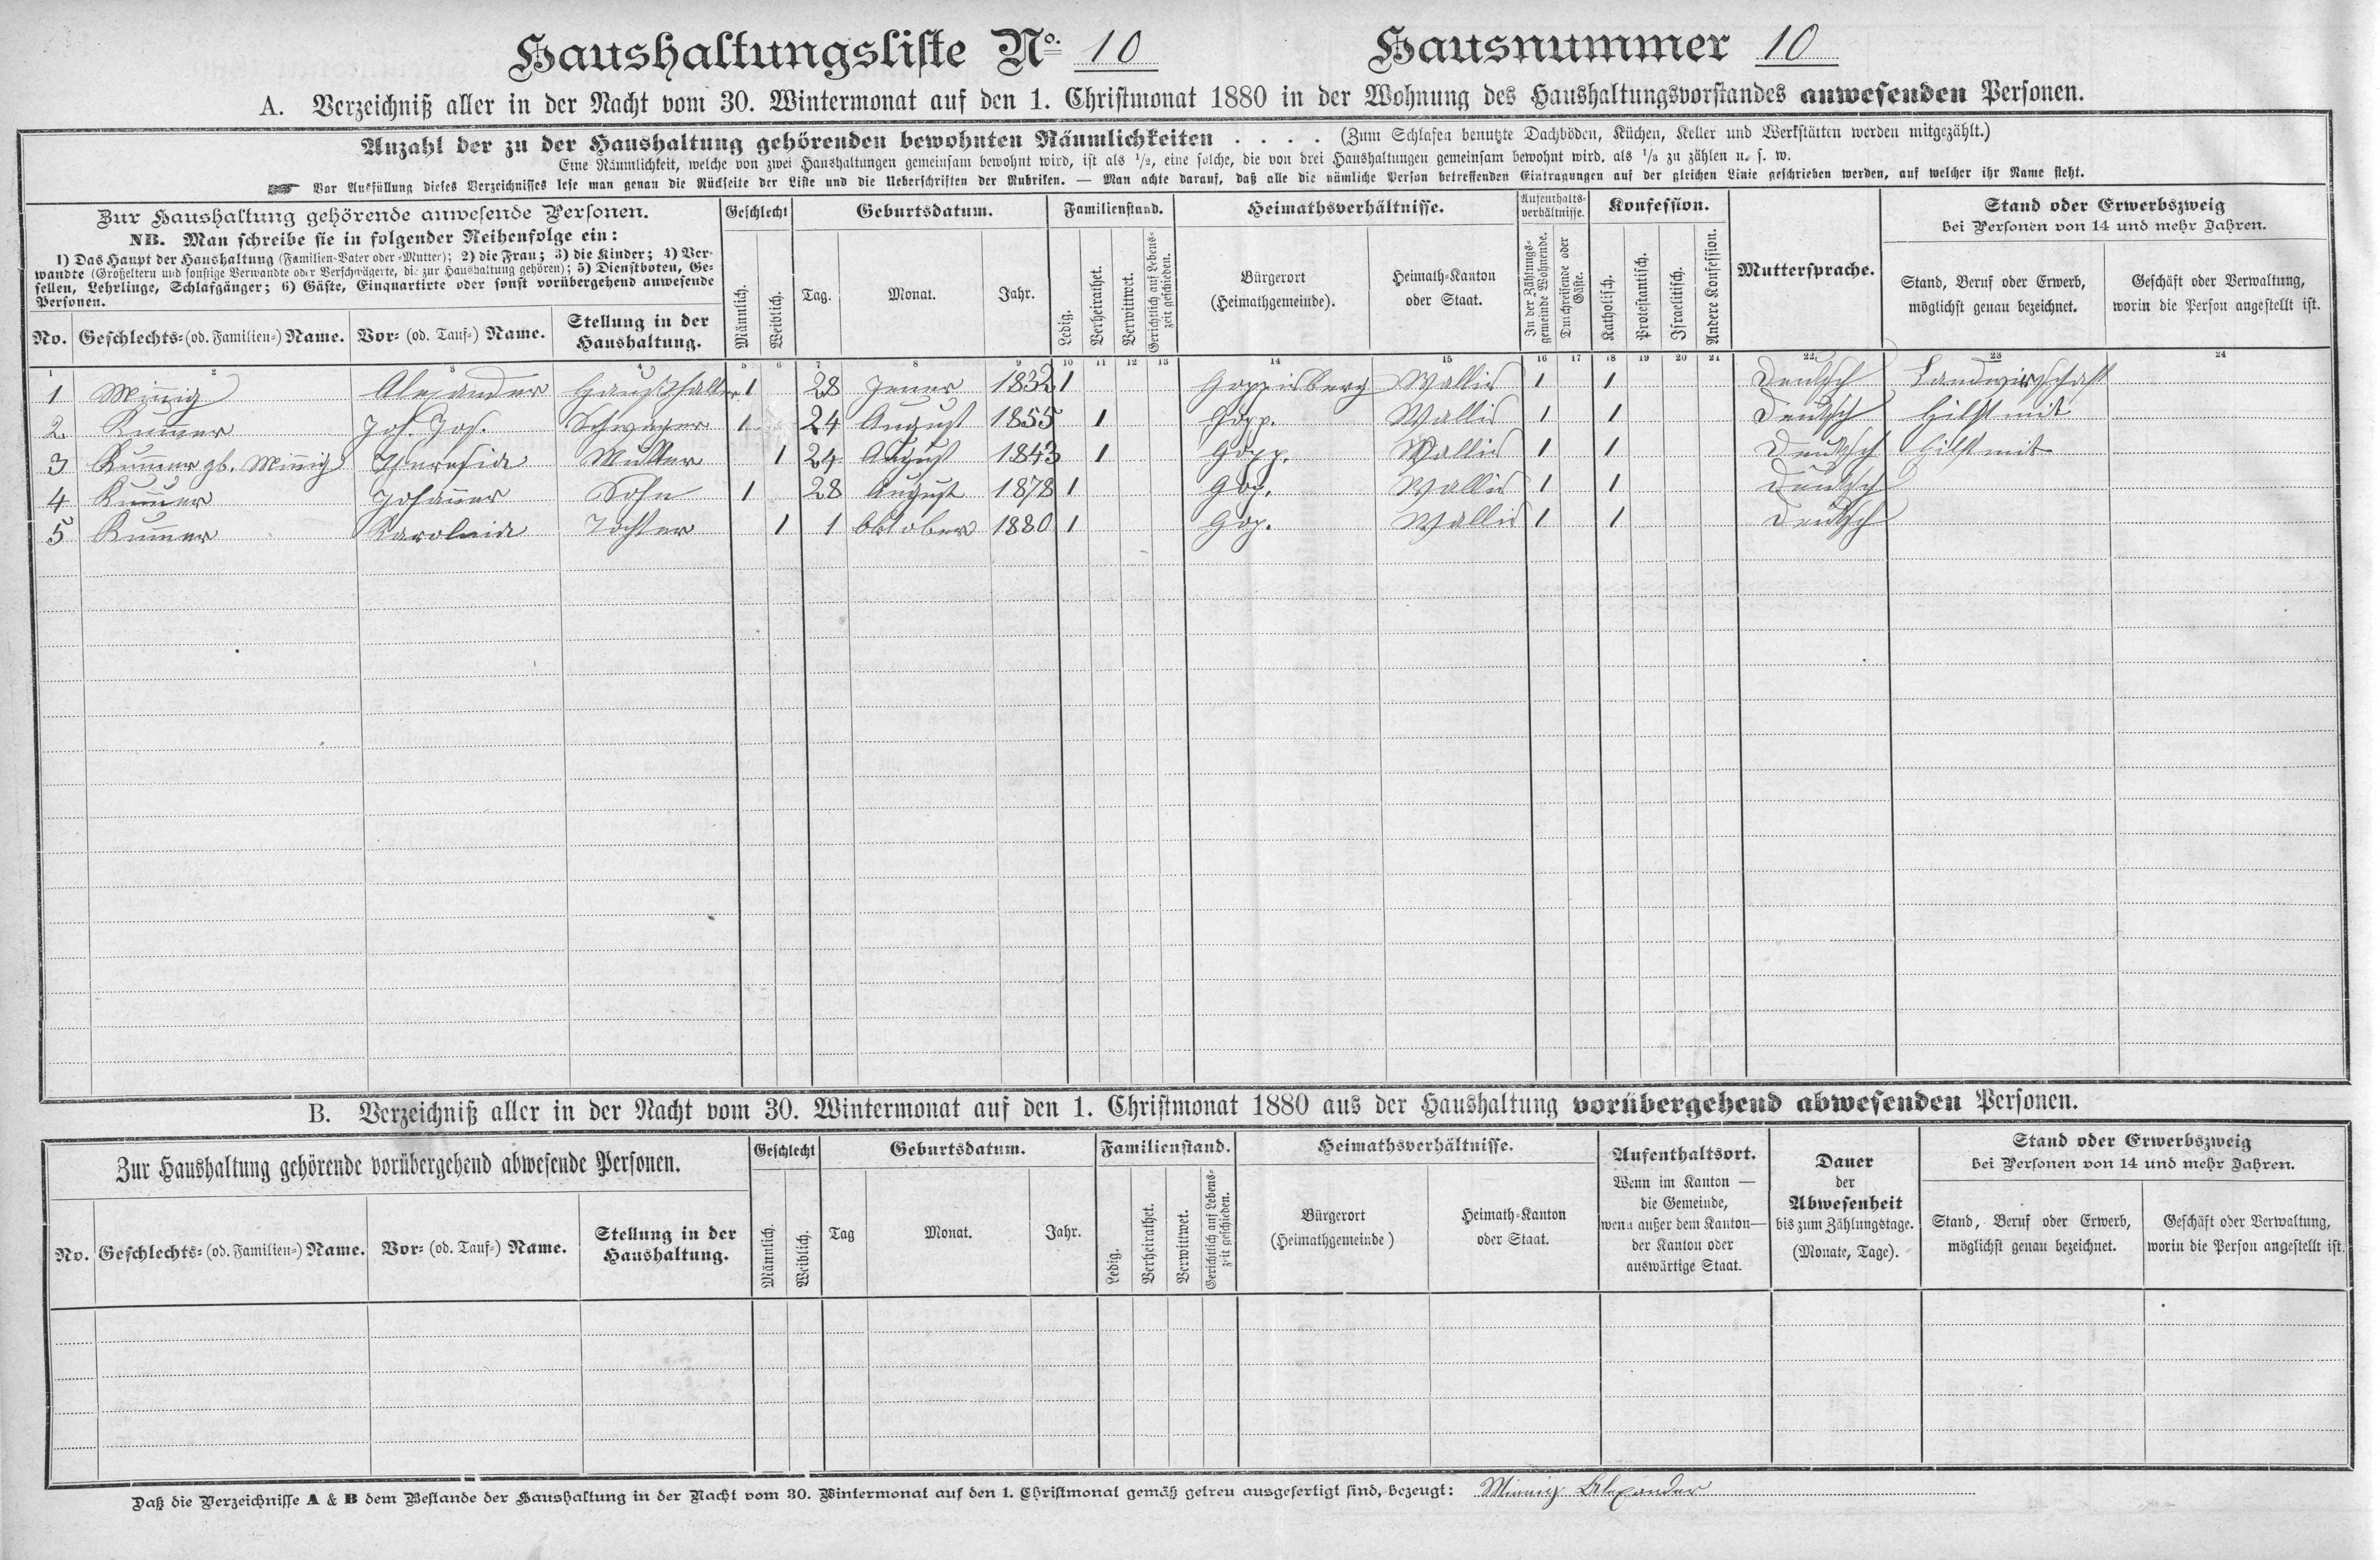 Haushaltungsliste No. 10 Hausnummer 10
A. Verzeichniß aller in der Nacht vom 30. Wintermonat auf den 1. Christmonat 1880 in der Wohnung des Haushaltungsvorstandes anwesenden Personen.
Anzahl der zu der Haushaltung gehörenden bewohnten Räumlichkeiten . . . . (Zum Schlafen benutzte Dachböden, Küchen, Keller und Werkstätten werden mitgezählt.)
Eine Räumlichkeit, welche von zwei Haushaltungen gemeinsam bewohnt wird, ist als 1/2, eine solche, die von drei Haushaltungen gemeinsam bewohnt wird, als 1/3 zu zählen u. s. w.
☛ Vor Ausfüllung dieses Verzeichnisses lese man genau die Rückseite der Liste und die Ueberschriften der Rubriken. — Man achte darauf, daß alle die nämliche Person betreffenden Eintragungen auf der gleichen Linie geschrieben werden, auf welcher ihr Name steht.
Zur Haushaltung gehörende anwesende Personen.
NB. Man schreibe sie in folgender Reihenfolge ein:
1) Das Haupt der Haushaltung (Familien-Vater oder -Mutter); 2) die Frau; 3) die Kinder; 4) Ver-
wandte (Großeltern und sonstige Verwandte oder Verschwägerte, die zur Haushaltung gehören); 5) Dienstboten, Ge-
sellen, Lehrlinge, Schlafgänger; 6) Gäste, Einquartirte oder sonst vorübergehend anwesende
Personen.
No. Geschlechts- (od. Familien-) Name. Vor- (od. Tauf-) Name. Stellung in der Haushaltung.
Geschlecht
Männlich. Weiblich.
Geburtsdatum.
Tag. Monat. Jahr.
Familienstand.
Ledig. Verheirathet. Verwittwet. Gerichtlich auf Lebens-
zeit geschieden.
Heimathsverhältnisse.
Bürgerort
(Heimathgemeinde).
Heimath-Kanton
oder Staat.
Aufenthalts-
verhältnisse.
In der Zählungs-
gemeinde Wohnende.
Durchreisende oder
Gäste.
Konfession.
Katholisch. Protestantisch. Israelitisch. Andere Konfession.
Muttersprache.
Stand oder Erwerbszweig
bei Personen von 14 und mehr Jahren.
Stand, Beruf oder Erwerb,
möglichst genau bezeichnet.
Geschäft oder Verwaltung,
worin die Person angestellt ist.
1 2 3 4 5 6 7 8 9 10 11 12 13 14 15 16 17 18 19 20 21 22 23 24
1 Minnig Alexander Haußhalter 1 28 Jener 1832 1 Goppisberg Wallis 1 1 Deutsch Landwirthschaft
2 Kummer Joh. Jos. Schwager 1 24 August 1855 1 Gopp. Wallis 1 1 Deutsch hilft mit
3 Kummer gb. Minnig Theresia Mutter 1 24 August 1843 1 Gopp. Wallis 1 1 Deutsch hilft mit
4 Kummer Johannes Sohn 1 28 August 1878 1 Gop. Wallis 1 1 Deutsch
5 Kummer Tochter 1 1 Oktober 1880 1 Gop. Wallis 1 1 Deutsch
B. Verzeichniß aller in der Nacht vom 30. Wintermonat auf den 1. Christmonat 1880 aus der Haushaltung vorübergehend abwesenden Personen.
Zur Haushaltung gehörende vorübergehend abwesende Personen.
No. Geschlechts- (od. Familien-) Name. Vor- (od. Tauf-) Name. Stellung in der Haushaltung.
Geschlecht
Männlich. Weiblich.
Geburtsdatum.
Tag Monat. Jahr.
Familienstand.
Ledig. Verheirathet. Verwittwet. Gerichtlich auf Lebens-
zeit geschieden.
Heimathsverhältnisse.
Bürgerort
(Heimathgemeinde)
Heimath-Kanton
oder Staat.
Aufenthaltsort.
Wenn im Kanton —
die Gemeinde,
wenn außer dem Kanton—
der Kanton oder
auswärtige Staat.
Dauer
der
Abwesenheit
bis zum Zählungstage.
(Monate, Tage).
Stand oder Erwerbszweig
bei Personen von 14 und mehr Jahren.
Stand, Beruf oder Erwerb,
möglichst genau bezeichnet.
Geschäft oder Verwaltung,
worin die Person angestellt ist.
Daß die Verzeichnisse A & B dem Bestande der Haushaltung in der Nacht vom 30. Wintermonat auf den 1. Christmonat gemäß getreu ausgefertigt sind, bezeugt: Minnig Alexander